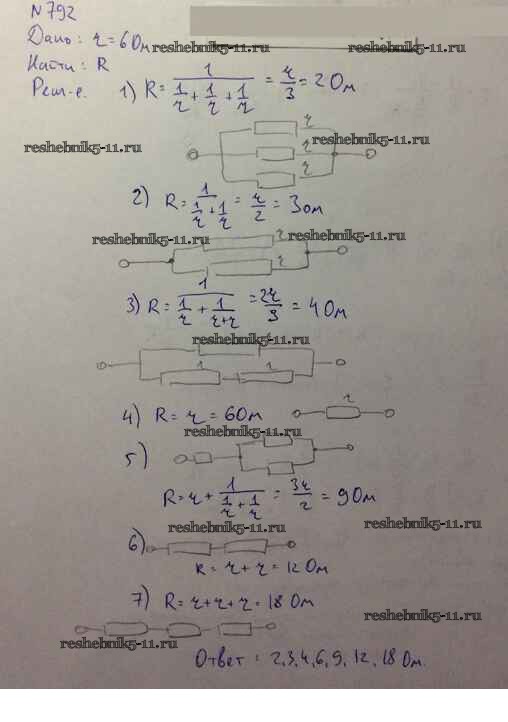 N 792
Дано: r = 6 Ом reshebnik5-11.ru
Найти: R
Реш-е. 1) R = 1 / (1/r + 1/r + 1/r) = r/3 = 2 Ом
r
reshebnik5-11.ru
r
reshebnik5-11.ru
r
2) R = 1 / (1/r + 1/r) = r/2 = 3 Ом
reshebnik5-11.ru r reshebnik5-11.ru
r
3) R = 1 / (1/r + 1/(r+r)) = 2r/3 = 4 Ом
reshebnik5-11.ru
r r
4) R = r = 6 Ом r
reshebnik5-11.ru
5)
R = r + 1 / (1/r + 1/r) = 3r/2 = 9 Ом
reshebnik5-11.ru reshebnik5-11.ru
6)
R = r + r = 12 Ом
7) R = r + r + r = 18 Ом
reshebnik5-11.ru
reshebnik5-11.ru
Ответ: 2, 3, 4, 6, 9, 12, 18 Ом.